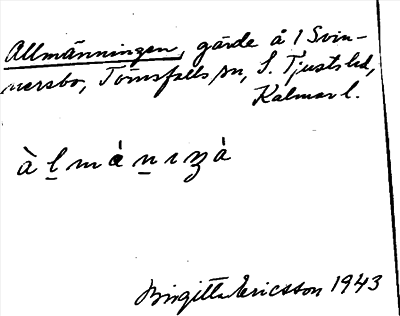 Allmänningen, gärde å 1 Svin-
nersbo, Törnsfalls sn, S. Tjusts hd,
Kalmar l.
à l̠ m á n̠ ı ȥ à
Birgitta Ericsson 1943